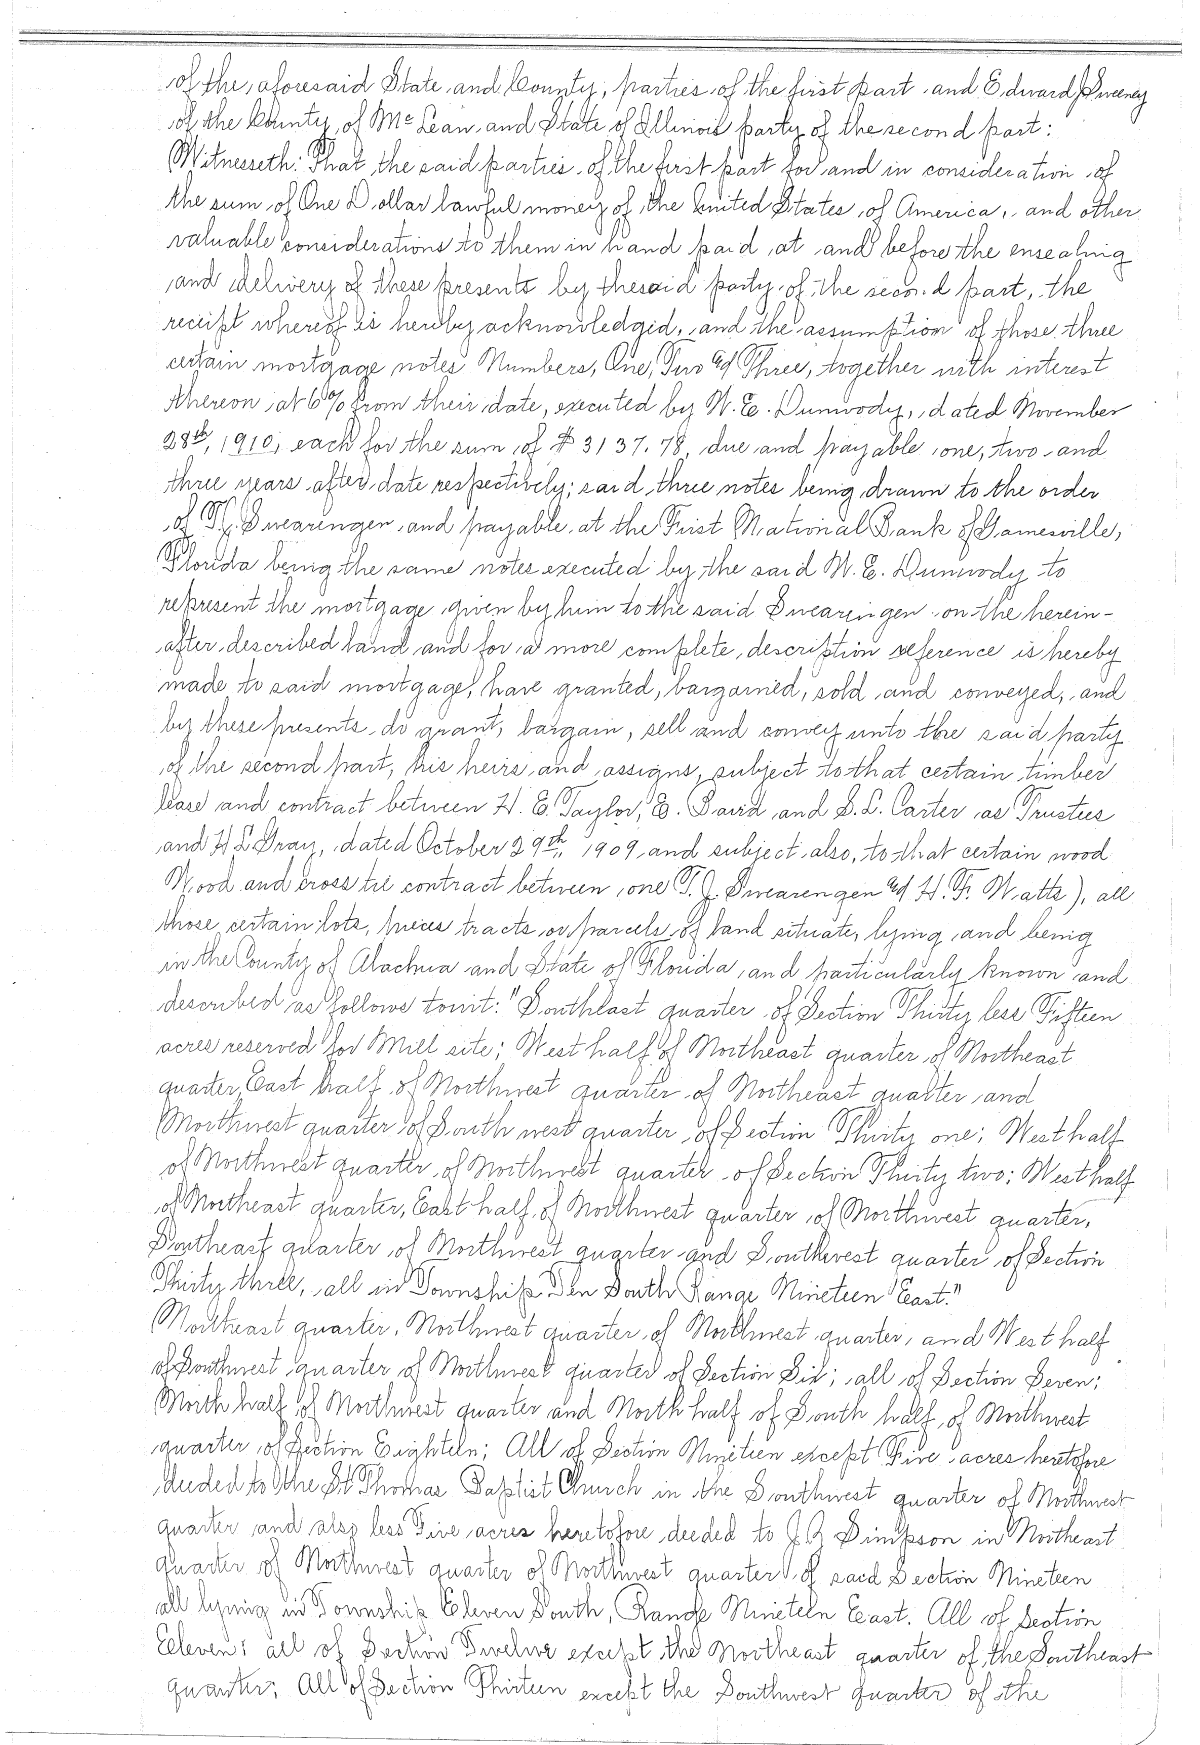 of the aforesaid State and County, parties of the first part and Edward Sweeney
of the County of Mc Lean and State of Illinois party of the second part:
Witnesseth: That the said parties of the first part for and in consideration of
the sum of One Dollar lawful money of the United States of America, and other
valuable considerations to them in hand paid at and before the ensealing
and delivery of these presents by the said party of the second part, the
receipt whereof is hereby acknowledgid, and the assumption of those three
certain mortgage notes Numbers, One, Two & Three, together with interest
thereon at 6% from their date, executed by W. E. Dunwody, dated November
28th, 1910, each for the sum of $3137.78, due and payable one, two and
three years after date respectively; said three notes being drawn to the order
of Swearengen and payable at the First National Bank of Gainesville,
Florida being the same notes executed by the said W. E. Dunwody to
represent the mortgage given by him to the said Swearingen on the herein-
after described land and for a more complete description reference is hereby
made to said mortgage, have granted, bargained, sold and conveyed, and
by these presents do grant, bargain, sell and convey unto the said party
of the second part, his heirs and assigns, subject to that certain timber
lease and contract between H. E. Taylor, E. Baird and S. L. Carter as Trustees
and H L Gray, dated October 29th, 1909 and subject also, to that certain wood
Wood and cross tie contract between one T. J. Swearengen & H. F. Watts), all
those certain lots, pieces tracts or parcels of land situate, lying and being
in the County of Alachua and State of Florida, and particularly known and
described as follows towit: "Southeast quarter of Section Thirty less Fifteen
acres reserved for Mill site; West half of Northeast quarter of Northeast
quarter, East half of Northwest quarter of Northeast quarter and
Northwest quarter of South west quarter of Section Thirty one; West half
of Northwest quarter of Northwest quarter of Section Thirty two; West half
of Northeast quarter, East half of Northwest quarter of Northwest quarter,
Southeast quarter of Northwest quarter and Southwest quarter of Section
Thirty three, all in Township Ten South Range Nineteen East."
Northeast quarter, Northwest quarter of Northwest quarter, and West half
of Southwest quarter of Northwest quarter of Section Six; all of Section Seven;
North half of Northwest quarter and North half of South half of Northwest
quarter of Section Eighteen; All of Section Nineteen except Five acres heretofore
deeded to the St Thomas Baptist Church in the Southwest quarter of Northwest
quarter and also less Five acres heretofore deeded to Simpson in Northeast
quarter of Northwest quarter of Northwest quarter of said Section Nineteen
all lying in Township Eleven South, Range Nineteen East. All of Section
Eleven; all of Section Twelve except the Northeast quarter of the Southeast
quarter; All of Section Thirteen except the Southwest quarter of the